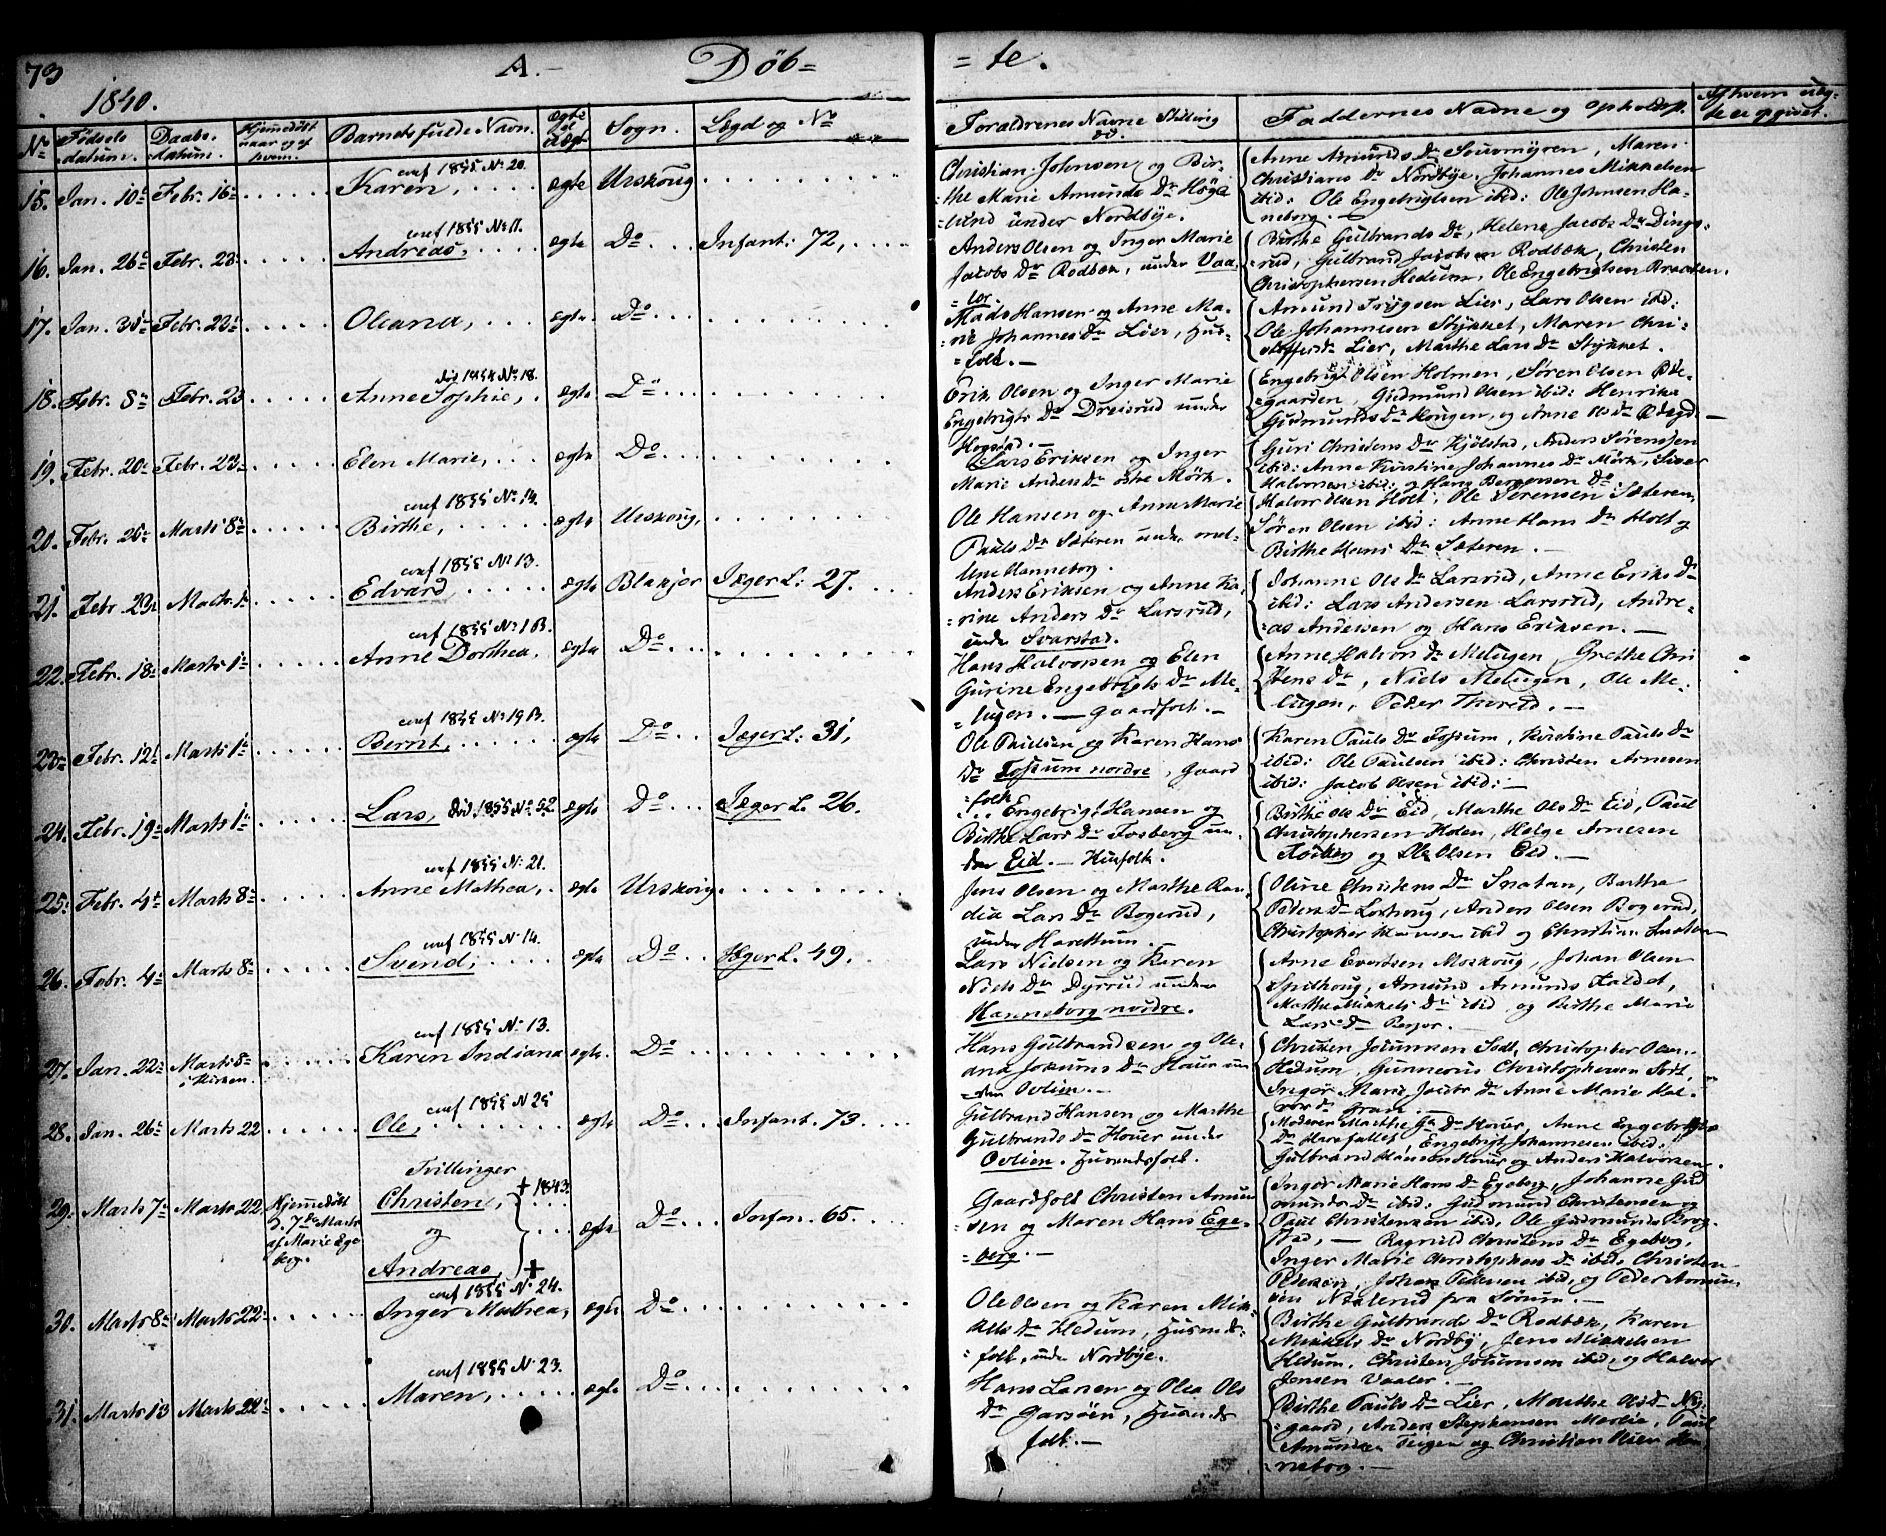 73 A. Döb= =te.
1840.
No Fødsels datum. Daabs datum. Hjemmedøbt naar og af hvem. Barnets fulde Navn. Ægte el. uægt. Sogn. Lægd og No
Foraldrenes Navne Stilling Faddernes Navne og Ophold Af hvem
conf 1855 No 20.
15. Jan. 10 Febr. 16 Karen, ægte Urskoug
Christian Johnsen og Bir=
=the Marie Amunds Dr
under Nordbye.
Anne Amunds Dr Maren
Christians Dr Nordbye, Johannes Mikkelsen
ibid: Ole Engebrigtsen ibid: Ole Johnsen Ha=
neborg.
conf 1855 No 11.
16. Jan. 26 Febr. 23 Andreas, ægte Do Infant: 72,
Anders Olsen og Inger Marie
Jacobs Dr Rodbæk, under Vaa=
=ler.
Birthe Gulbrands Dr, Helene Jacobs Dr Dings=
=rud, Gulbrand Jacobsen Rodbæk, Christen
Christophersen Hedum, Ole Engebrigtsen Braaten.
17. Jan. 30 Febr. 23 Oleana, ægte Do
Mads Hansen og Anne Ma=
=rie Johannes Dr Lier, Hus=
=folk.
Amund Lier, Lars Olsen ibid:
Ole Johannesen Stykket, Maren Chri=
stoffers Dr Lier, Marthe Lars Dr Stykket.
18. Febr. 8 Febr. 23 Anne Sophie, ægte Do
Erik Olsen og Inger Marie
Engebrigts Dr Dreisrud under
Hogstad.
Engebrigt Olsen Holmen, Søren Olsen Øde=
=gaarden, Gudmund Olsen ibid: Henrika
Gudmunds Dr Hougen, og Anne Ols Dr
19. Febr. 20 Febr. 23 Elen Marie, ægte Do
Lars Eriksen og Inger
Marie Anders Dr østre Mørk.
Guri Christens Dr Kjølstad, Anders Sørensen
ibid: Anne Kirstine Johannes Dr Mørk, Siver
Halvorsen ibid: og Hans Dr
conf 1855 No 14.
20. Febr. 20 Marts 8 Birthe, ægte Urskoug,
Ole Hansen og Anne Marie
Pauls Dr Sæteren under mel=
lem Hanneborg.
Halvor Olsen Holt, Ole Sørensen Sæteren,
Søren Olsen ibid: Anne Hans Dr Holt og
Birthe Hans Dr Sæteren.
conf 1855 No 13.
21. Febr 23 Marts 1 Edvard, ægte Blakjer Jæger L: 27.
Anders Eriksen og Anne Ka=
=rine Anders Dr Larsrud,
under Svarstad.
Johanne Ols Dr Larsrud, Anne Eriks Dr
ibid: Lars Andersen Larsrud, Andre=
=as Andersen og Hans Eriksen.
conf 1855 No 1 B.
22. Febr. 18 Marts 1 Anne Dorthea, ægte Do
Hans Halvorsen og Elen
Gurine Engebrigts Dr Me=
=lugen. Gaardfolk.
Anne Halvors Dr Melugen, Grethe Chri
stens Dr, Niels Melugen, Ole Me=
lugen, Peder Thorud.
conf 1855 No 19 B.
23 Febr. 12 Marts 1 Bernt, ægte Do Jæger L: 31,
Ole Paulsen og Karen Hans
Dr Fossum nordre, Gaard
=folk
Karen Pauls Dr Fossum, Kirstine Pauls Dr
ibid: Ole Paulsen ibid: Christen Arnesen
ibid: Jacob Olsen ibid:
24. Febr. 19 Marts 1 Lars, død 1855 No 52 ægte Do Jæger L. 26.
Engebrigt Hansen og
Birthe Lars Dr Fosberg un=
der Eid. Husfolk.
Birthe Ols Dr Eid, Marthe Ols Dr Eid, Paul
Christophersen Holen, Helge Arnesen
og Ole Olsen Eid.
conf 1855 No 21.
25. Febr. 4 Marts 8 Anne Mathea, ægte Urskoug
Jens Olsen og Marthe Ran=
dia Lars Dr Bogerud,
under
Oline Christens Dr Snatan, Berthe
Peders Dr Anders Olsen Bogerud,
Christopher Hansen ibid og Christian
conf 1855 No 14.
26. Febr. 4 Marts 8 Svend, ægte Do Jæger L. 49.
Lars Nielsen og Karen
Niels Dr Dyrrud under
Hanneborg nordre.
Arne Evertsen Moskoug, Johan Olsen
Amund Amunds
Marthe Mikkels Dr ibid og Birthe Marie
Lars Dr
conf 1855 No 13.
27. Jan. 22 Marts 8 Karen Indiana ægte. Do
i Kirken.
Hans Gulbrandsen og Ole=
ana Jokums Dr Houer un
der Ovlien.
Christen Christopher Olsen
Hedum, Gunnerus Christophersen
Inger Marie Jacobs Dr Anne Marie Hal=
vors Dr
conf 1855 No 25
28. Jan. 26 Marts 22 Ole, ægte Do Infant. 73.
Gulbrand Hansen og Marthe
Gulbrands Dr Houer under
Ovlien. Husmandsfolk.
Moderen Marthe Dr Houer, Anne Engebrigts
Dr Engebrigt Johannesen ibid:
Gulbrand Hansen Houer og Anders Halvorsen.
Tvillinger
29. Marts 7 Marts 22 Hjemmedøbt Christen, + 1843. ægte Do Infan. 65.
d. 7de Marts og
af Marie Ege
berg. Andreas, +
Gaardfolk Christen Amun
=sen og Maren Hans Ege=
=berg.
Inger Marie Hans Dr Egeberg, Johanne Gud
munds Dr ibid: Gudmund Christensen og
Paul Christensen ibid, Ole Gudmunds
Ragnild Christens Dr Egeberg,
Inger Marie Christophers Dr ibid, Christen
Pedersen, Johan Pedersen ibid, og Peder Amun
sen fra Sørum.
conf 1855 No 24.
30. Marts 8 Marts 22 Inger Mathea, ægte Do
Ole Olsen og Karen Mik=
kels Dr Hedum, Husmds=
=folk, under Nordbye.
Birthe Gulbrands Dr Rodbæk, Karen
Mikkels Dr Nordby, Jens Mikkelsen
Hedum, Christen ibid, og Halvor
Jensen Vaaler.
conf 1855 No 23.
31. Marts 13 Marts 22 Maren, ægte Do
Hans Larsen og Olea Ols
Dr Garsöen, Husmds
folk.
Birthe Pauls Dr Lier, Marthe Ols Dr Ny=
=gaard, Anders Stephansen Paul
Amundsen og Christian Olsen Han=
=neborg.